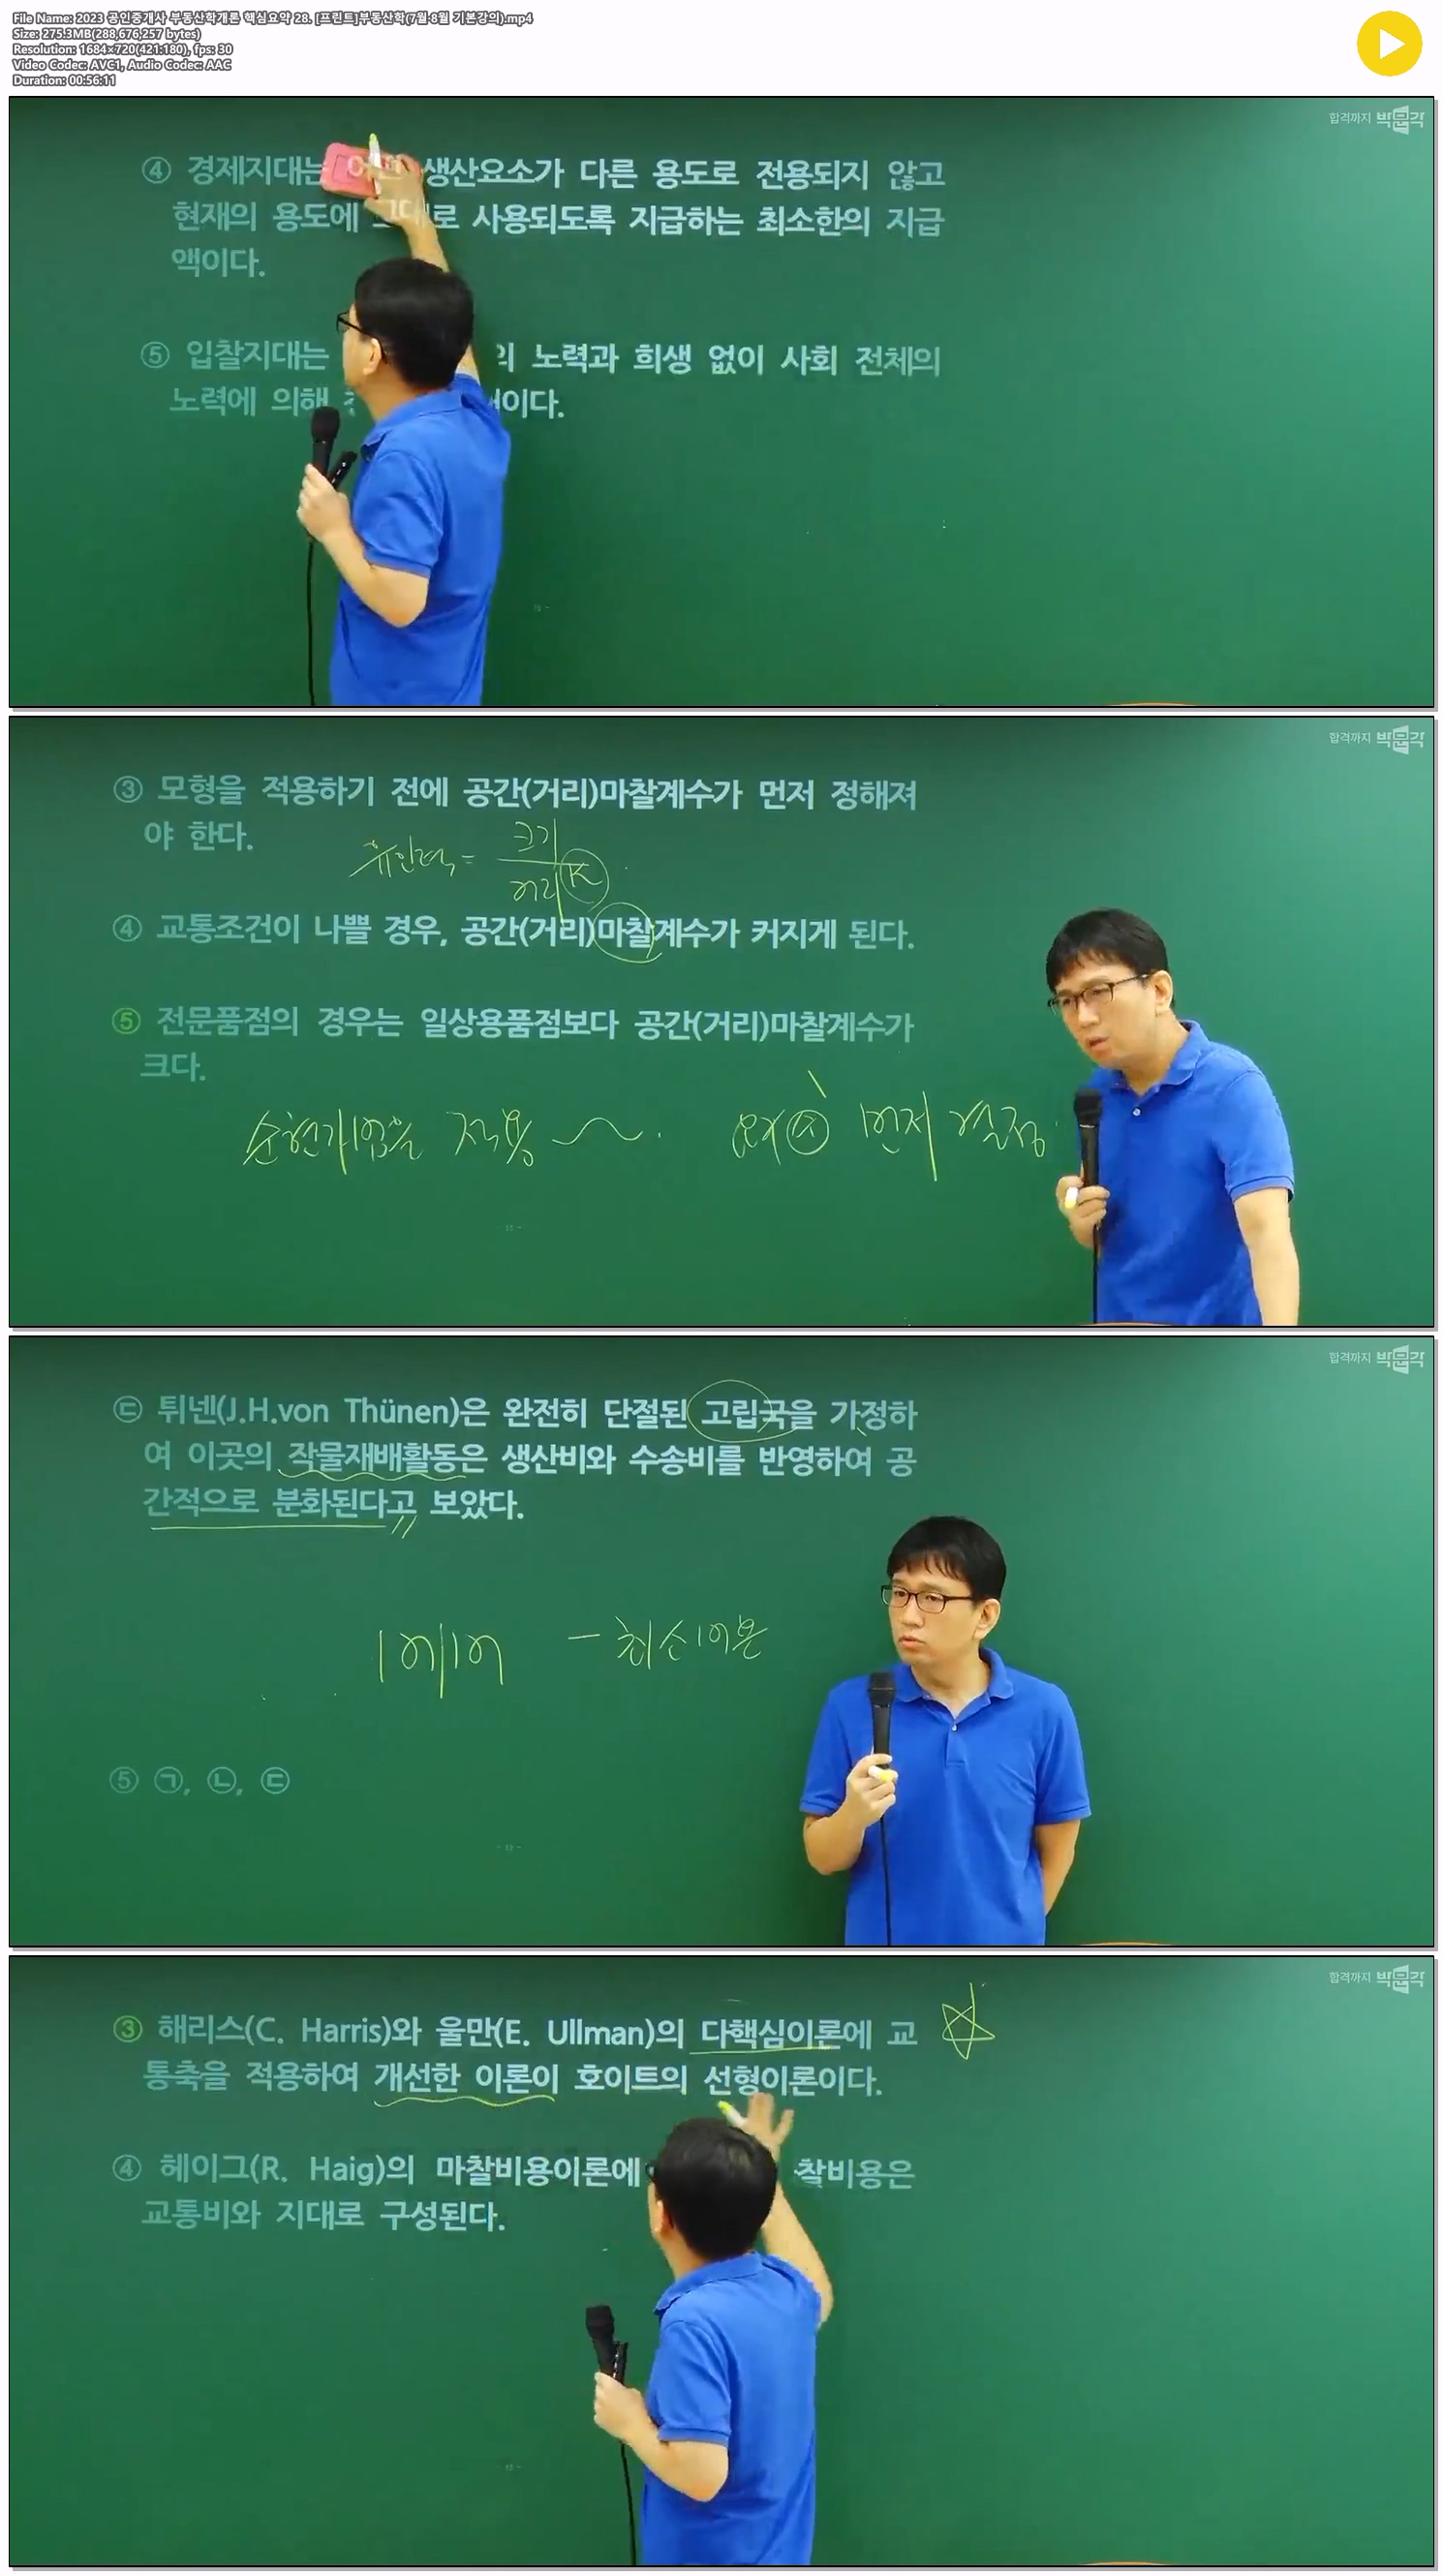 File Name: 2023 공인중개사 부동산학개론 핵심요약 28. [프린트]부동산학(7월·8월 기본강의).mp4
Size: 275.3MB(288,676,257 bytes)
Resolution: 1684×720(421:180), fps: 30
Video Codec: AVC1, Audio Codec: AAC
Duration: 00:56:11
합격까지 박문각
④ 경제지대는 생산요소가 다른 용도로 전용되지 않고
현재의 용도에 사용되도록 지급하는 최소한의 지급
액이다.
⑤ 입찰지대는 의 노력과 희생 없이 사회 전체의
노력에 의해 이다.
합격까지 박문각
③ 모형을 적용하기 전에 공간(거리)마찰계수가 먼저 정해져
야 한다.
유인력 = 크기
거리 K
④ 교통조건이 나쁠 경우, 공간(거리)마찰계수가 커지게 된다.
⑤ 전문품점의 경우는 일상용품점보다 공간(거리)마찰계수가
크다.
순현가법을 적용 먼저 결정
합격까지 박문각
㉢ 튀넨(J.H.von Thünen)은 완전히 단절된 고립국을 가정하
여 이곳의 작물재배활동은 생산비와 수송비를 반영하여 공
간적으로 분화된다고 보았다.
⑤ ㉠, ㉡, ㉢
합격까지 박문각
③ 해리스(C. Harris)와 울만(E. Ullman)의 다핵심이론에 교
통축을 적용하여 개선한 이론이 호이트의 선형이론이다.
④ 헤이그(R. Haig)의 마찰비용이론에 찰비용은
교통비와 지대로 구성된다.